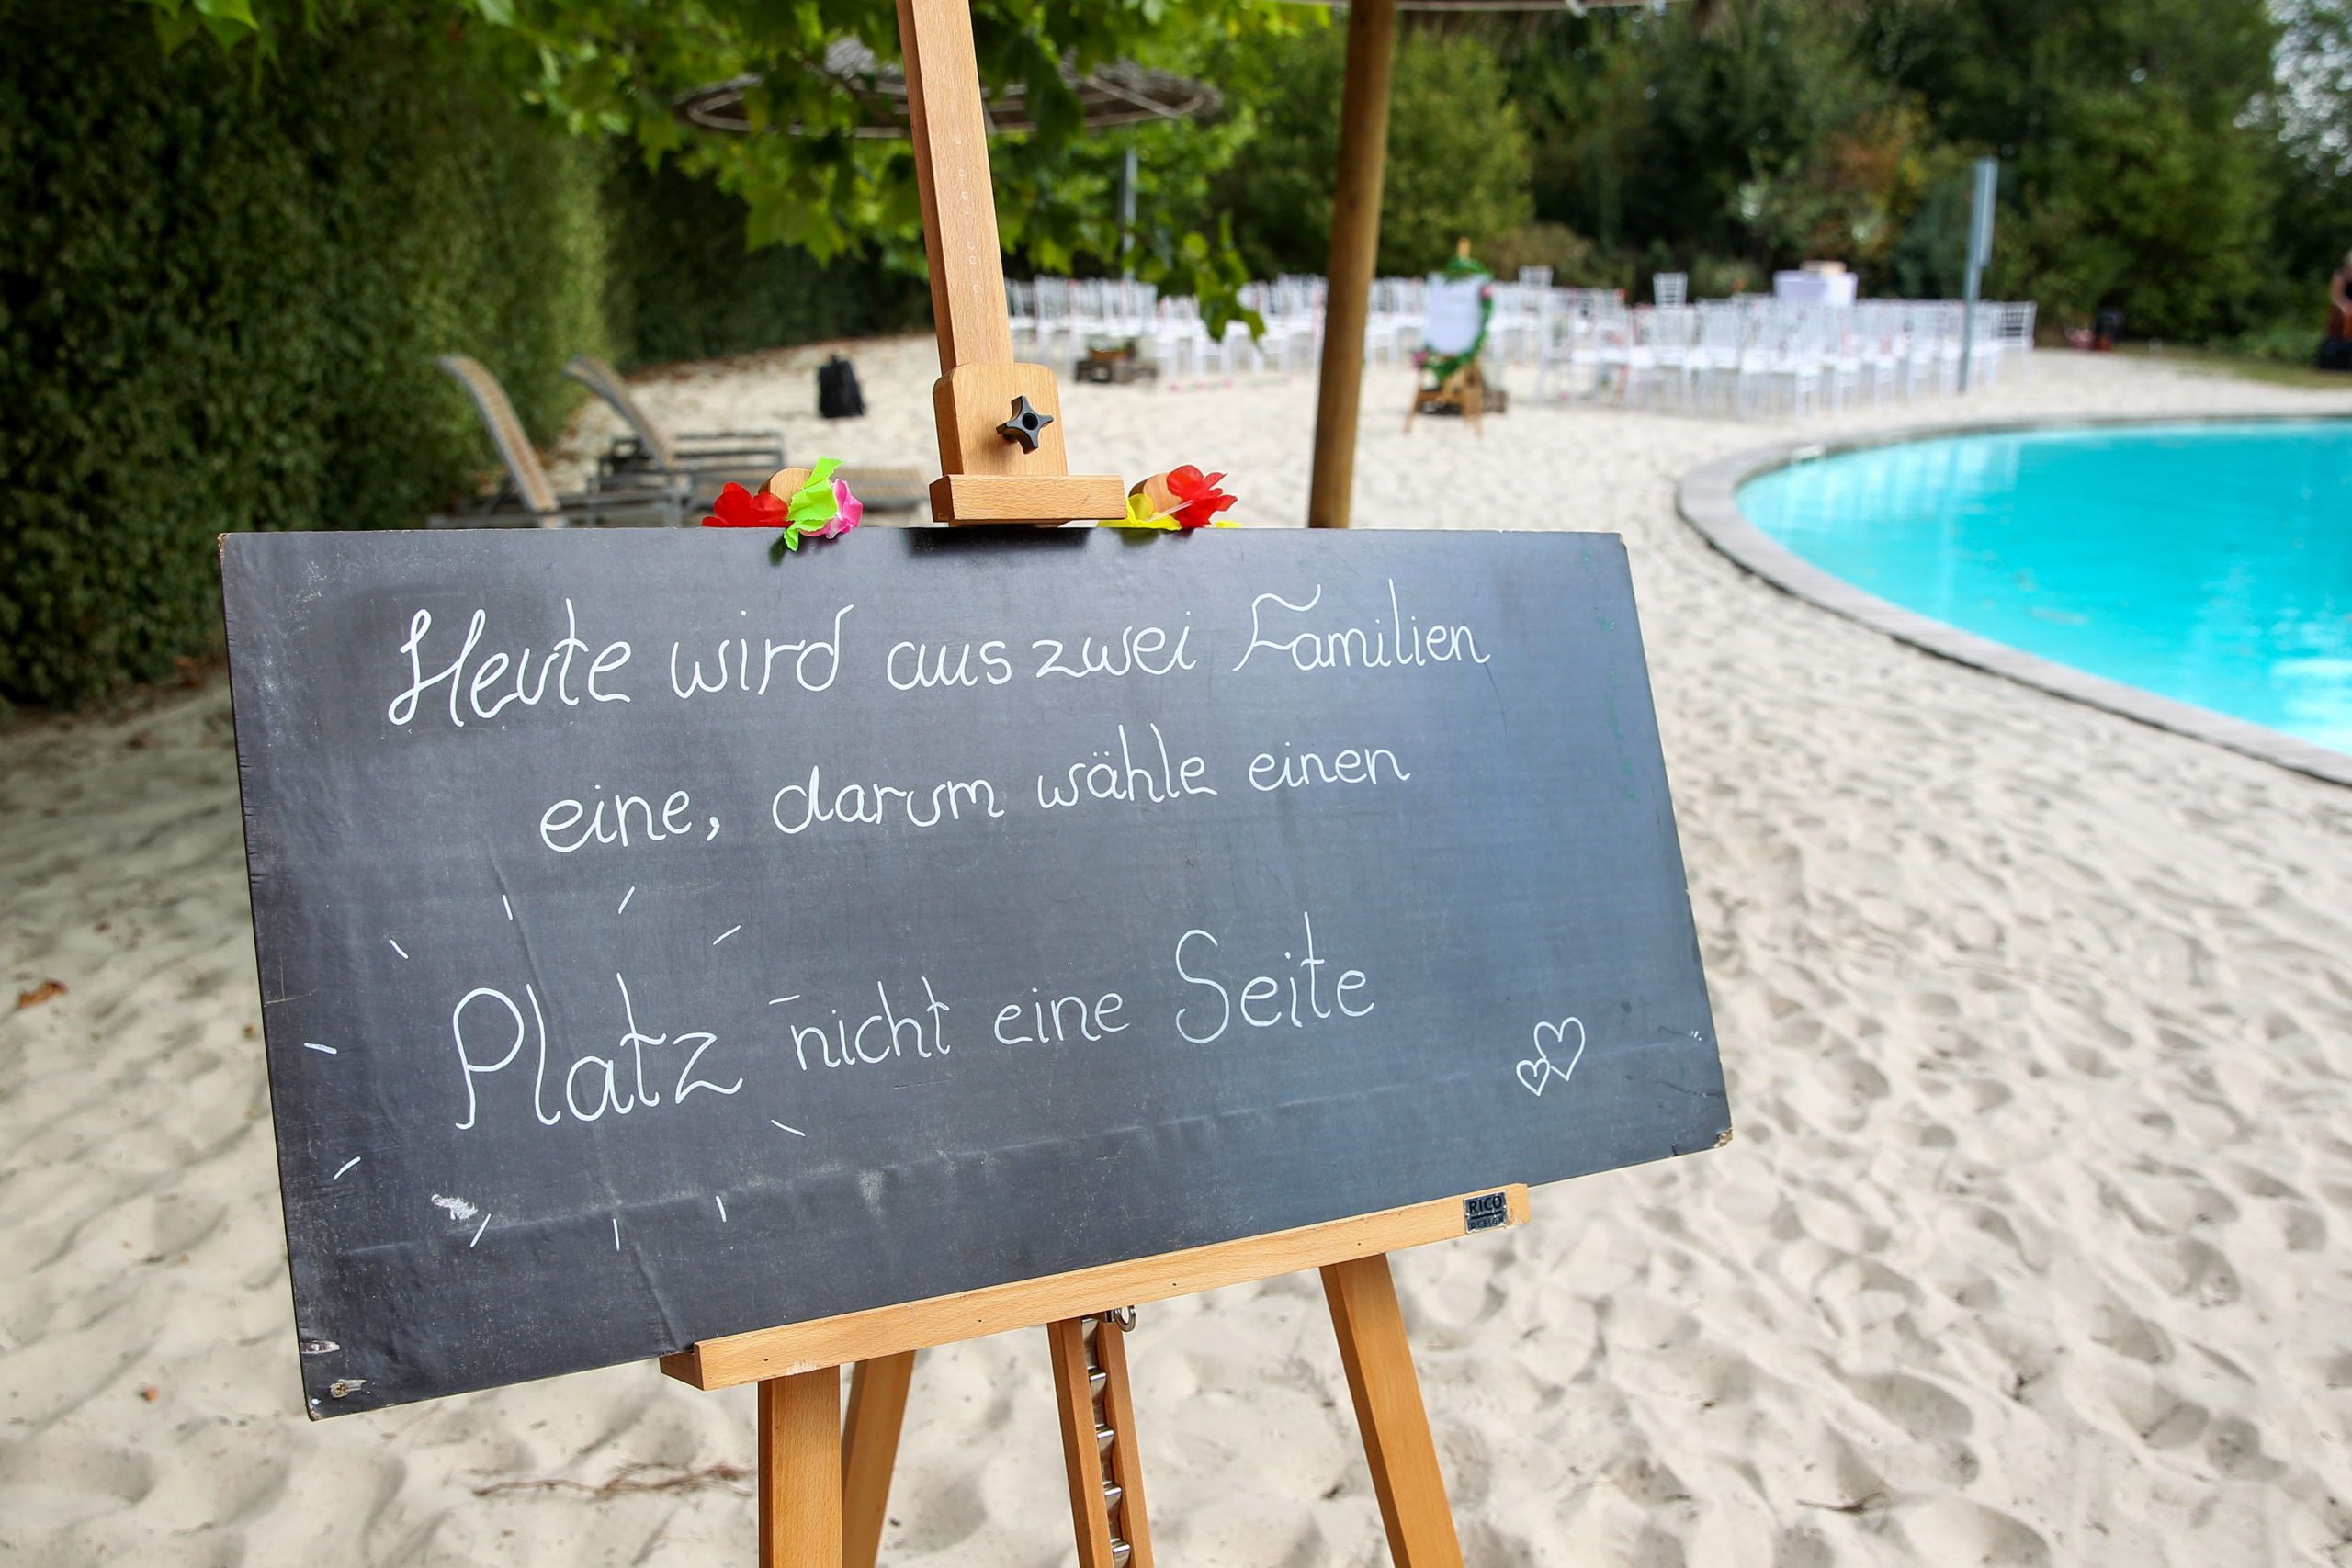 Heute wird aus zwei Familien
eine, darum wähle einen
Platz nicht eine Seite
RICO
DESIGN